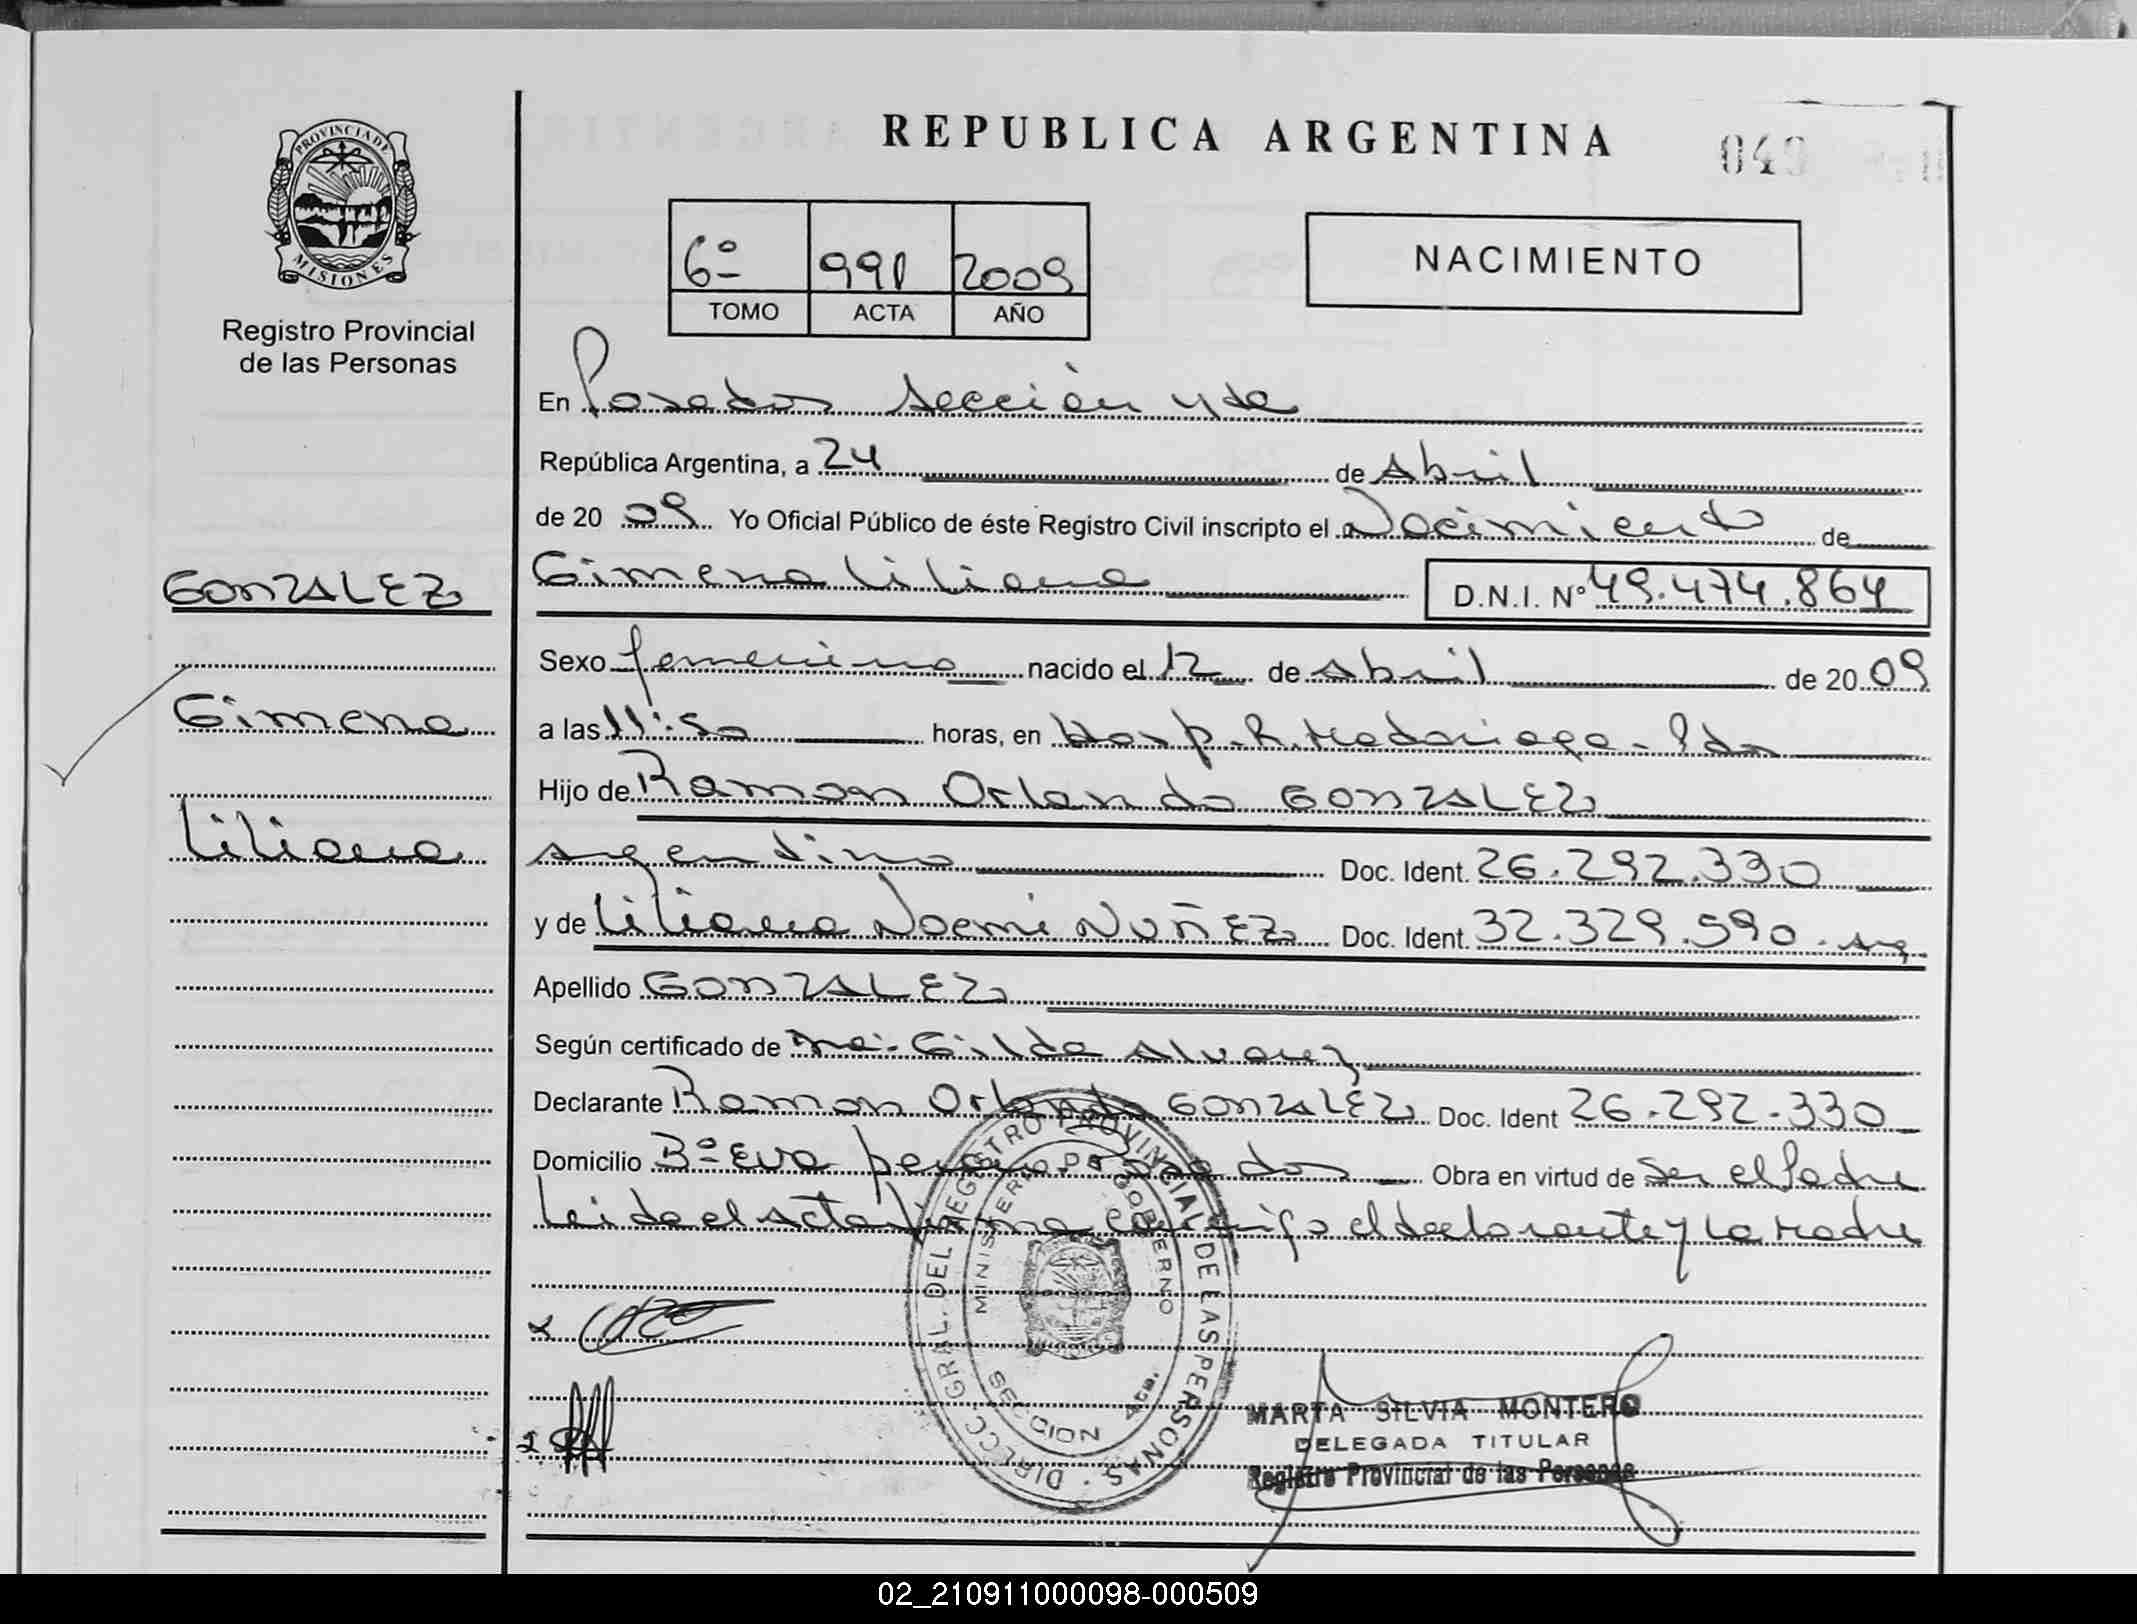 REPUBLICA ARGENTINA
PROVINCIA DE
MISIONES
Registro Provincial
de las Personas
6º 991 2009
TOMO ACTA AÑO
NACIMIENTO
En Posadas Sección 4ta
República Argentina, a 24 de Abril
de 20 09 Yo Oficial Público de éste Registro Civil inscripto el Nacimiento de
GONZALEZ
Gimena Liliana D.N.I. Nº 49.474.864
Sexo femenino nacido el 12 de Abril de 20 09
Gimena
a las 11:50 horas, en Hosp. R. Madariaga - Pdas
Hijo de Ramon Orlando GONZALEZ
Liliana
argentino Doc. Ident. 26.292.330
y de Liliana Noemi NUÑEZ Doc. Ident. 32.329.590. arg.
Apellido GONZALEZ
Según certificado de Gilda Alvarez
Declarante Ramon Orlando GONZALEZ Doc. Ident 26.292.330
Domicilio Bº Eva Peron Posadas Obra en virtud de Ser el Padre
Leida el acta firma conmigo el declarante y la Madre
DIRECC. GRAL. DEL REGISTRO PROVINCIAL DE LAS PERSONAS
MINISTERIO DE GOBIERNO
SECCION 4ta.
MARTA SILVIA MONTERO
DELEGADA TITULAR
Registro Provincial de las Personas
02_210911000098-000509